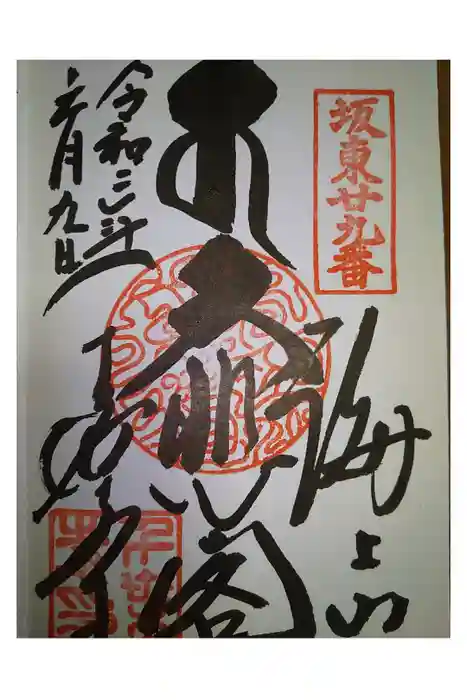 坂東廿九番
海上山
大悲閣
千葉寺
令和三年
六月九日